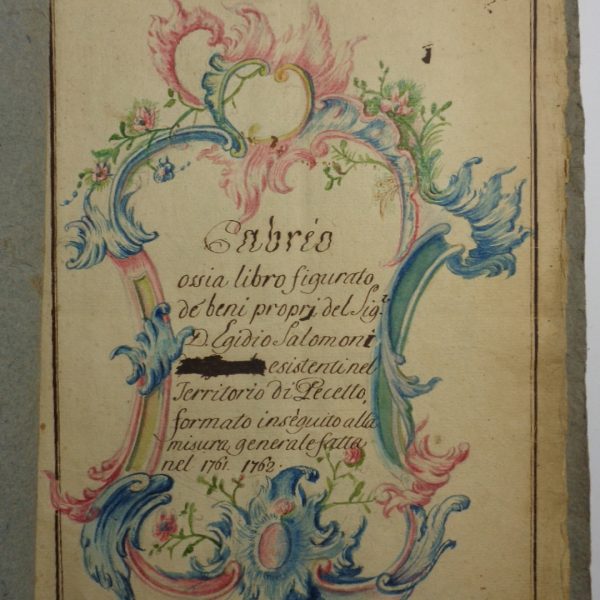 Cabréo
ossia libro figurato
de beni proprj del Sig.r
D. Egidio Salomoni
esistenti nel
Territorio di Pecetto,
formato inséguito alla
misura generale fatta
nel 1761. 1762.